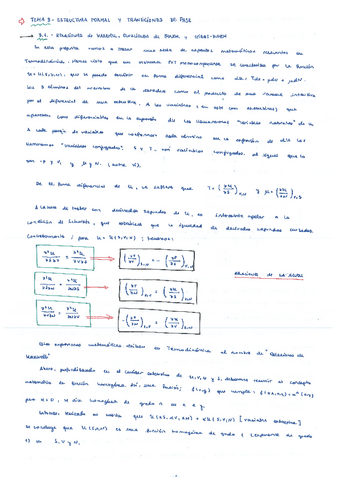 TEMA 3.- ESTRUCTURA FORMAL Y TRANSICIONES DE FASE
3.1. - RELACIONES DE MAXWELL, ECUACIONES DE EULER Y GIBBS-DUHEM
En este vamos a hacer una serie de aspectos matemáticos
Termodinámica. Hemos visto que un sistema PVT monocomponente la función
que se puede escribir en forma diferencial como dU = TdS - pdV + μdN.
los 3 términos del de la derivada como el producto de una variable intensiva
por el diferencial de una extensiva. A las variables (en este caso extensivas) que
aparecen como diferenciales en la expresión dU las llamaremos "variables naturales" de U.
A cada pareja de variables que conforman cada término en la expresión de dU las
llamaremos "variables conjugadas". S y T son variables conjugadas, al igual que lo
son -p y V, y μ y N.
De la forma diferencial de U, se extrae que T = (∂U/∂S)V,N y μ = (∂U/∂N)S,V
A la hora de hacer las derivadas segundas de U, es interesante apelar a la
condición de Schwartz, que establece la igualdad de derivadas segundas cruzadas.
para U = U(S,V,N), tenemos:
∂²U/∂V∂S = ∂²U/∂S∂V ⇒ (∂T/∂V)S,N = - (∂p/∂S)V,N
RELACIONES DE MAXWELL
∂²U/∂N∂S = ∂²U/∂S∂N ⇒ (∂T/∂N)S,V = (∂μ/∂S)V,N
∂²U/∂V∂N = ∂²U/∂N∂V ⇒ -(∂p/∂N)S,V = (∂μ/∂V)S,N
Estas expresiones matemáticas reciben en Termodinámica el nombre de "Relaciones de
Maxwell".
Ahora, profundizando en el carácter extensivo de U, V, N y S, debemos recurrir al concepto
matemático de función homogénea. Así, una función f(x,y) que cumple: f(λx,λy) = λⁿ f(x,y)
para λ > 0, se dice homogénea de grado n en x e y.
Entonces, que U(λS, λV, λN) = λU(S,V,N) [variables extensivas]
Se concluye que U(S,V,N) es una función homogénea de grado 1 (exponente de grado
1) en S, V y N.